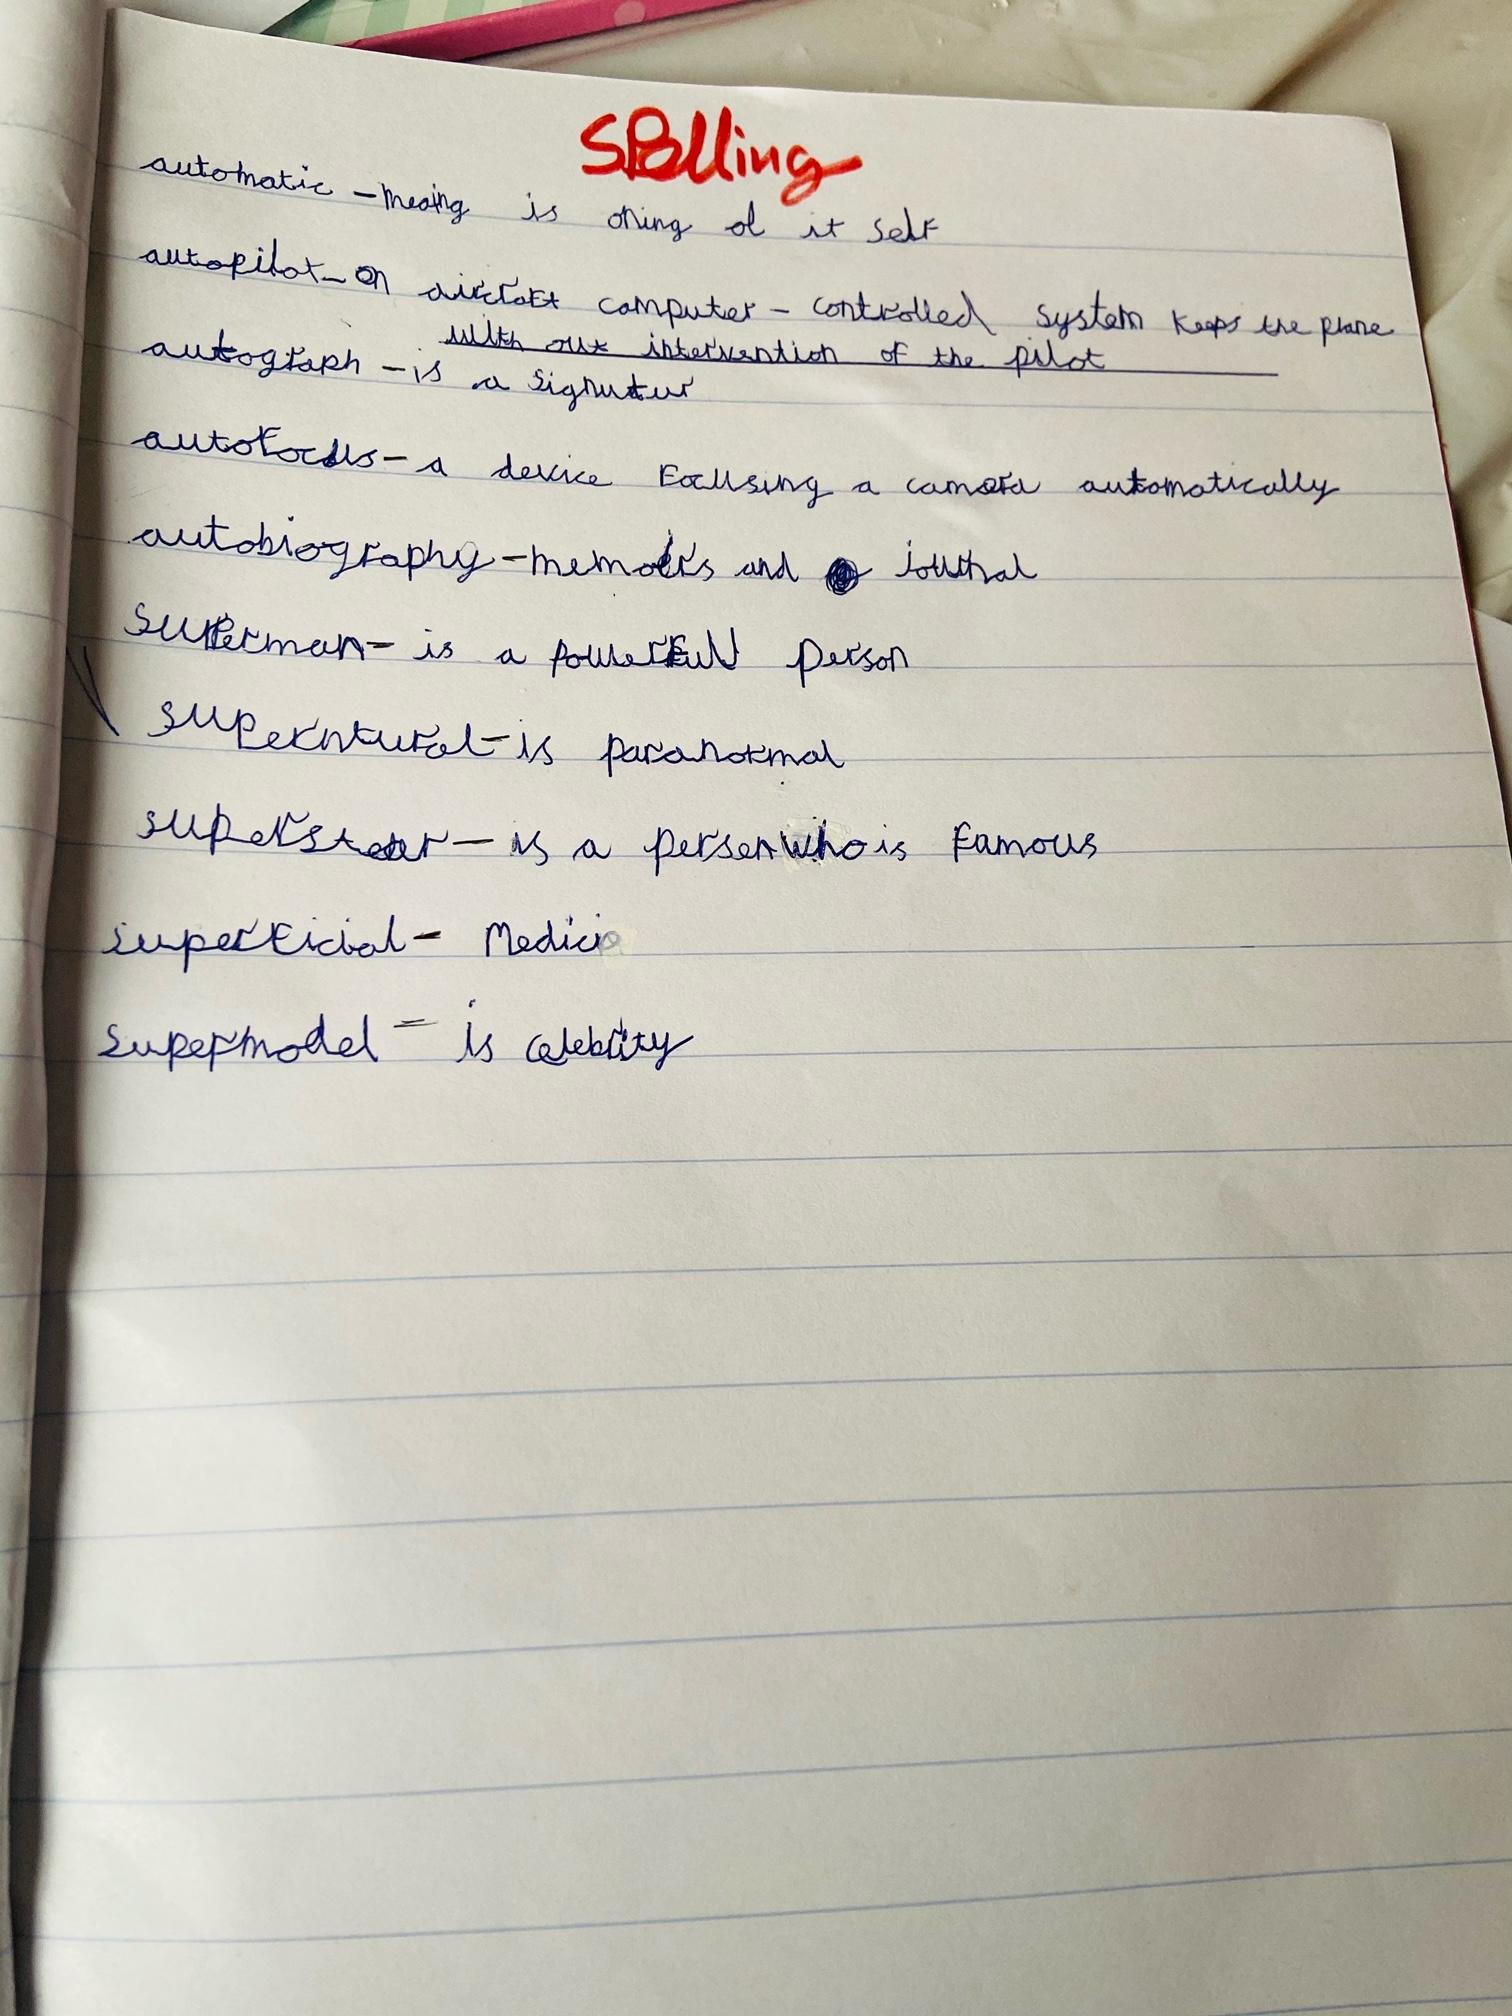 SPelling
automatic - meaing is oning of it self
autopilot - on aircraft computer - controlled system keeps the plane
with out intervention of the pilot
autograph - is a signutur
autofocus - a device focusing a camera automatically
autobiography - memoirs and journal
superman - is a powerful person
superntural - is paranormal
superstar - is a persen who is famous
superficial - Medicie
supermodel - is celebrity